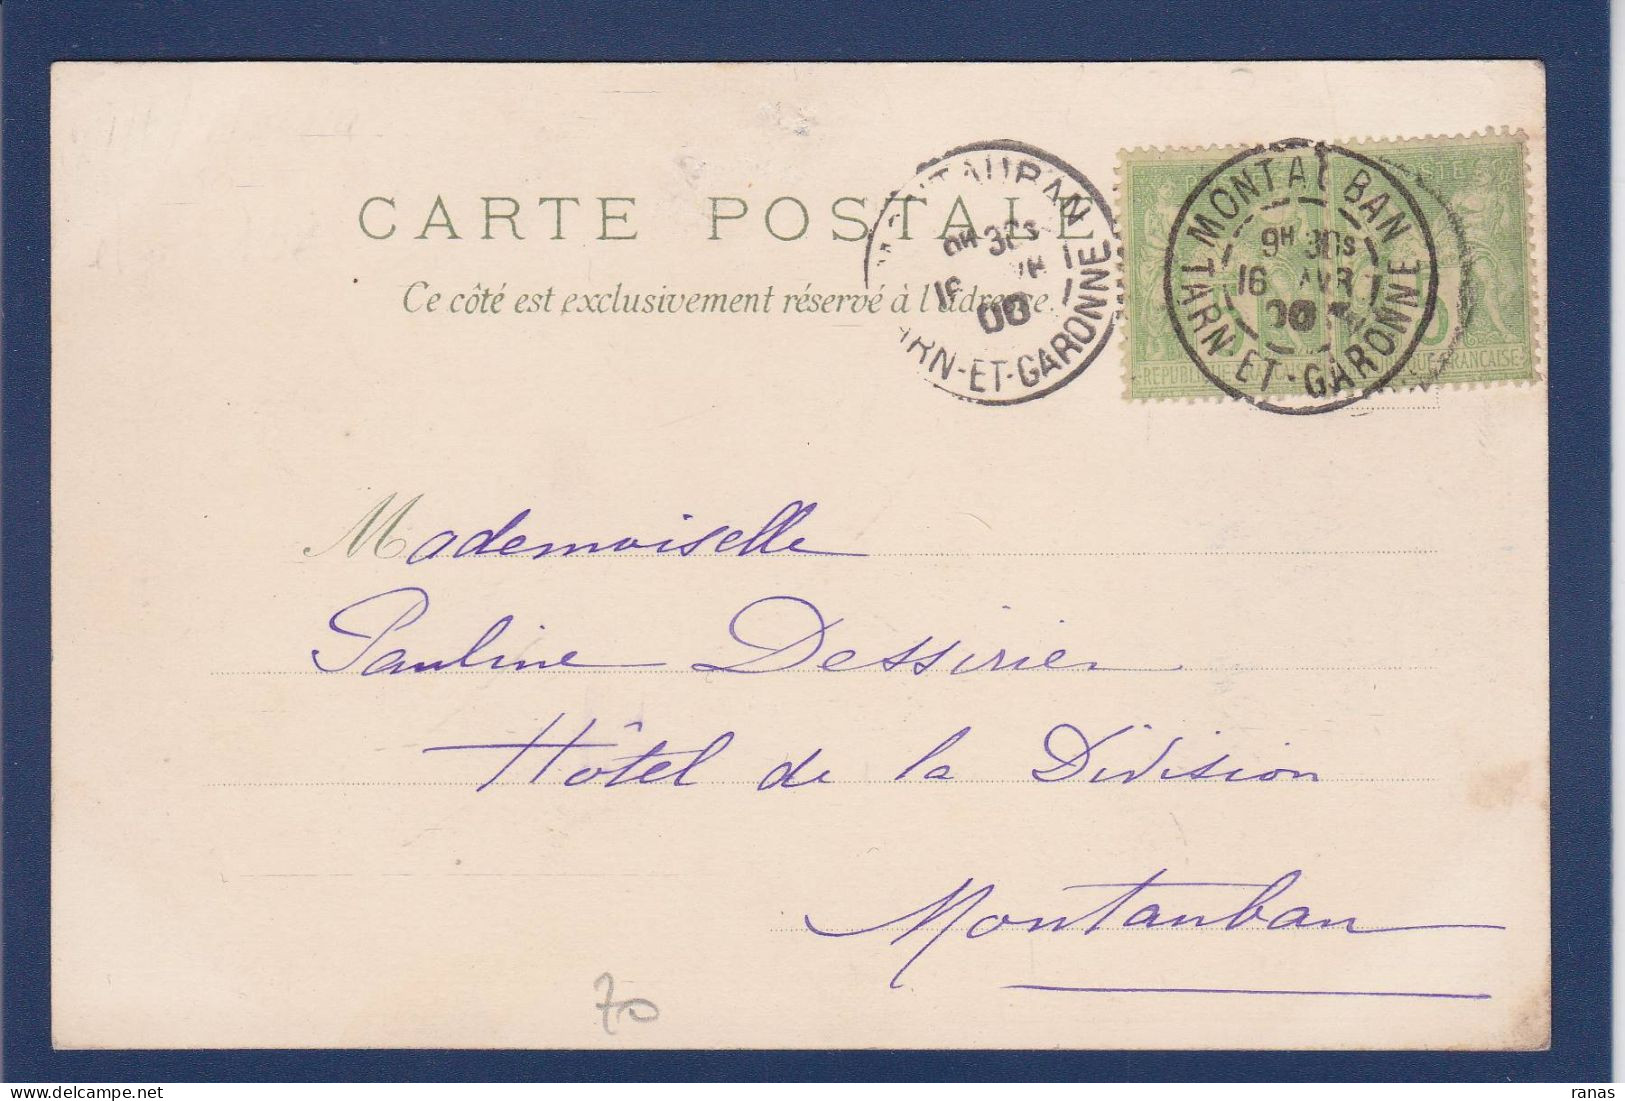 CARTE POSTALE
Ce côté est exclusivement réservé à l'adresse.
MONTAUBAN
9H 30S
16 AVRIL
00
TARN-ET-GARONNE
MONTAUBAN
9H 30S
16 AVRIL
00
TARN-ET-GARONNE
REPUBLIQUE FRANCAISE
Mademoiselle
Pauline Dessirier
Hôtel de la Division
Montauban
70
ranas